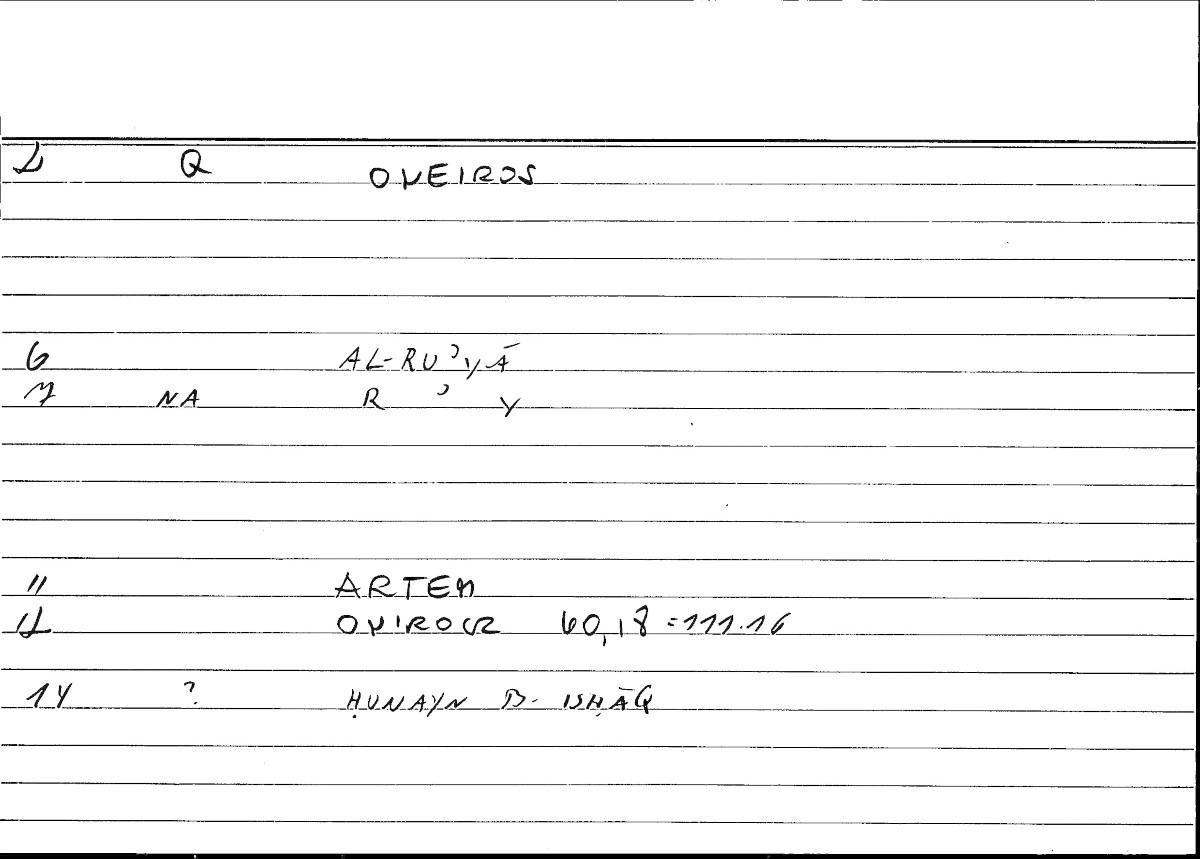 2 Q ONEIROS
6 AL-RUʾYĀ
7 NA R ʾ Y
11 ARTEM
12 ONIROCR 60,18 = 111.16
14 ? ḤUNAYN B. ISḤĀQ